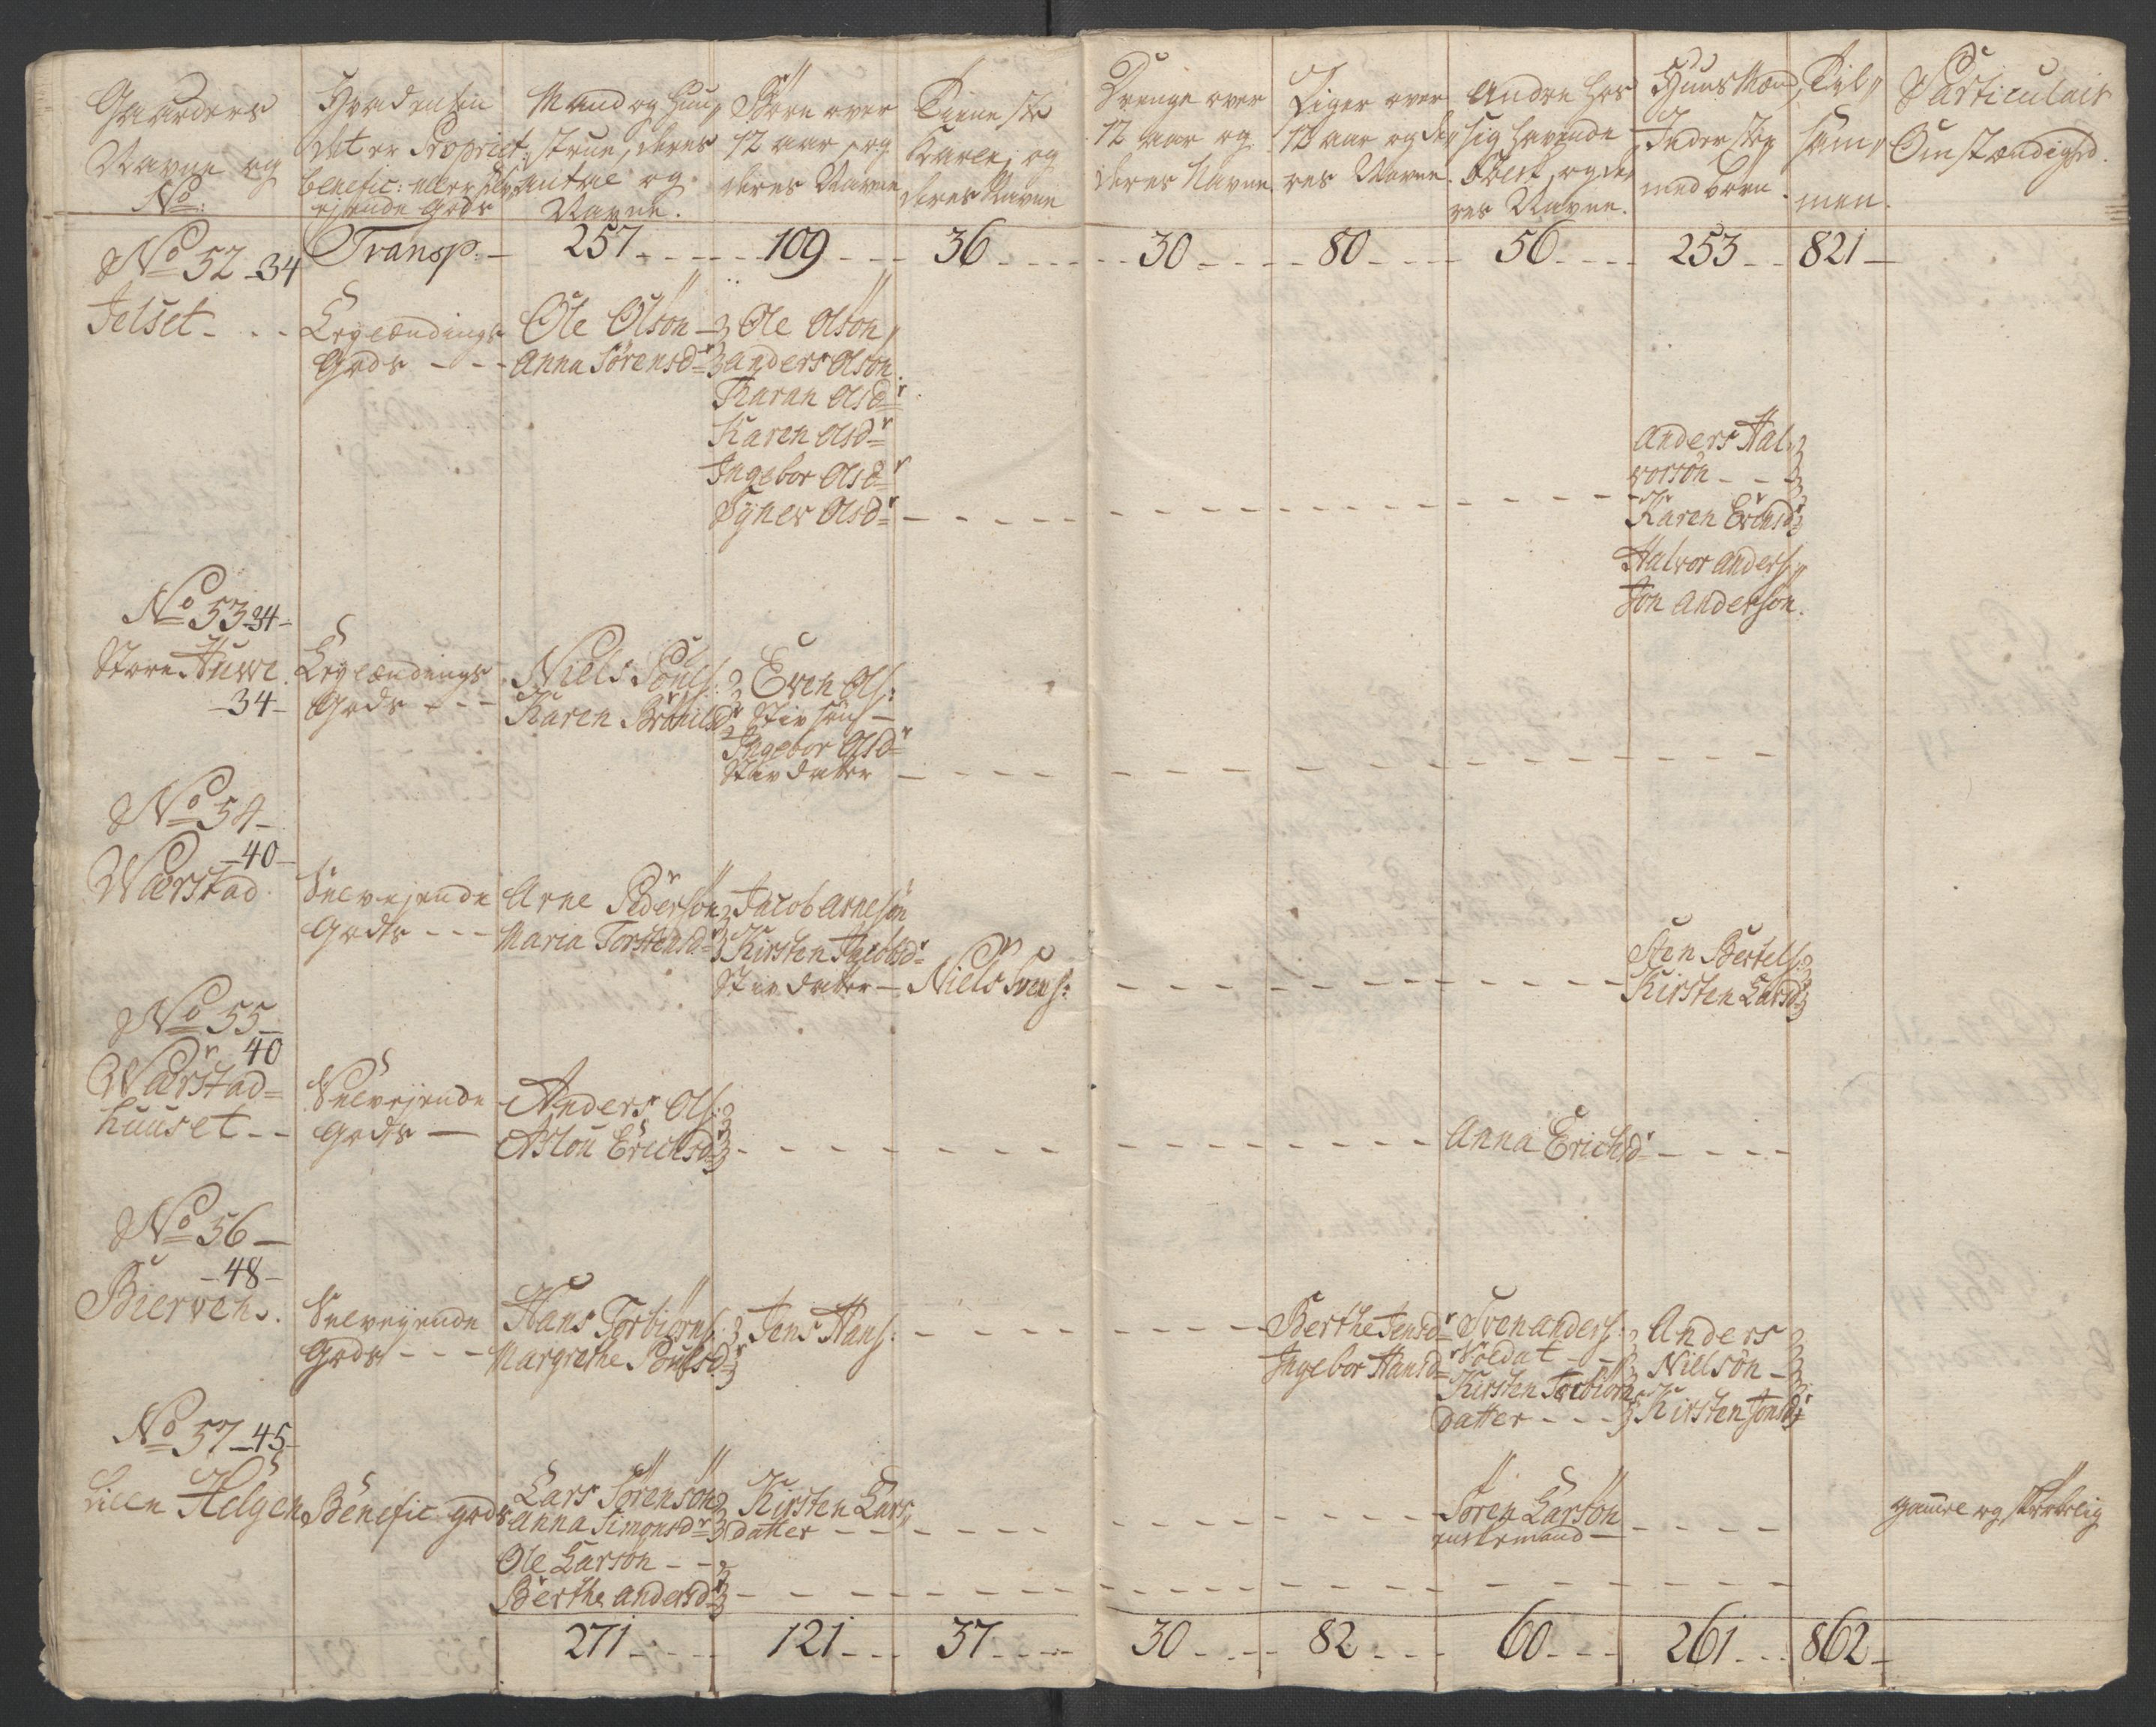 Gaarders
Navne og
No:
Hvordan
det er Propriet:
benefic: eller Selv
ejende Gods
Mand og Huu,,
strue, deres
antal og
Navne.
Börn over
12 aar, og
deres Navne
Tieneste
Karle, og
deres Navne
Drenge over
12 aar og
deres Navne
Piger over
12 aar og de,,
res Navne.
Andre hos
sig havende
Folck, og de,,
res Navne.
Huus Mænd,
Inderster
med børn.
Til,,
sam,,
men.
Particulair
Omstændighed.
Transp: 257 109 36 30 80 56 253 821
No 52 - 34
Jelset
Leylændings
Gods
Ole Olsön
Anna Sörensdr
Ole Olsön
Anders Olsön
Karan Olsdr
Karen Olsdr
Ingebor Olsdr
Synev Olsdr
Anders Hal,,
vorsön
Karen Ericsdr
Halvor Anders,,
Jon Anderson.
No 53 - 34
Store Huwe.
34
Leylændings
Gods
Niels Pouls:
Karen
Even Ols:
Stivsön
Ingebor Olsdr
Stivdatter
No 54
40
Wærstad
Selvejende
Gods
Arne Pedersön
Maria Torstensdr
Jacob Arnesön
Kirsten Jacobsdr
Stivdatter
Niels Svens:
Sten Bertels:
Kirsten Larsdr
No 55
40
Wærstad=
huuset
Selvejende
Gods
Anders Ols:
Aslou Erichsdr
Anna Erichsdr
No 56
48
Bierven.
Selvejende
Gods
Hans Torbiörns:
Margrethe Poulsdr
Jens Hans:
Berthe Jensdr
Ingebor Hansdr
Sven Anders:
Soldat
Kirsten Torbiörns
datter
Anders
Nielsön
Kirsten Jonsdr
No 57 - 45
Lille Helgen
Benefic: gods
Lars Sörensön
Anna Simonsdr
Ole Larsön
Berthe Andersdr
Kirsten Lars,,
datter
Sören Larsön
enckemand
gamel og skrøbelig
271 121 37 30 82 60 261 862